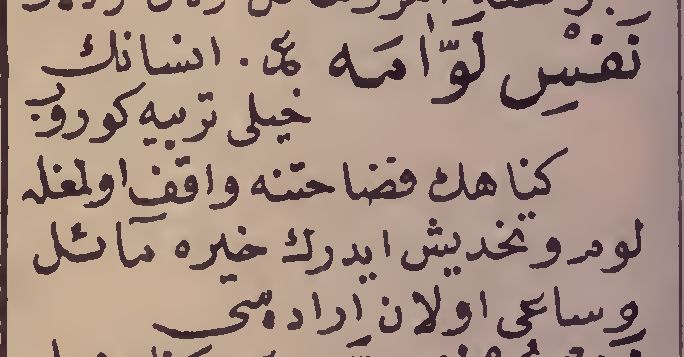 نَفْسِ لَوَّامَه عر. انسانك
خيلى تربيه كوروب
كناهك فضاحتنه واقف اولمغله
لوم و تخديش ايدرك خيره مائل
و ساعى اولان اراده سى